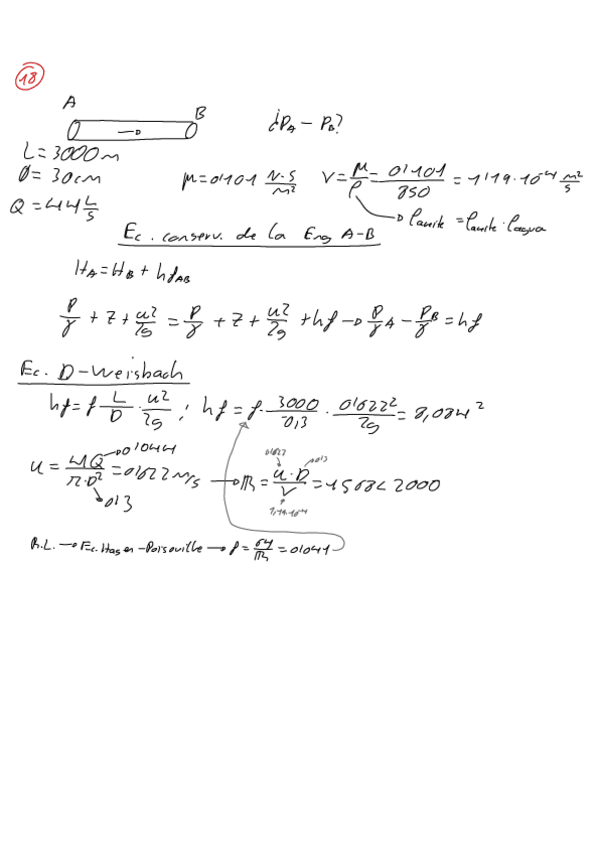 18
A B ¿P_A - P_B?
L = 3000 m
Ø = 30 cm μ = 0'101 N·S/m² V = μ/ρ = 0'101/850 = 1'19·10⁻⁴ m²/s
Q = 44 L/s ρ aceite = ρ aceite · ρ agua
Ec. conserv. de la Eng A-B
H_A = H_B + hf_AB
P/γ + z + u²/2g = P/γ + z + u²/2g + hf → P/γ A - P/γ B = hf
Ec. D-Weisbach
hf = f · L/D · u²/2g ; hf = f · 3000/0,3 · 0'622²/2g = 8,084²
u = 4Q/π·D² = 0'622 m/s → R = u·D/V = 1568 < 2000
0'044
0'3
0'622 0'3
1,19·10⁻⁴
R.L. → Ec. Hagen-Poisouille → f = 64/R = 0'041